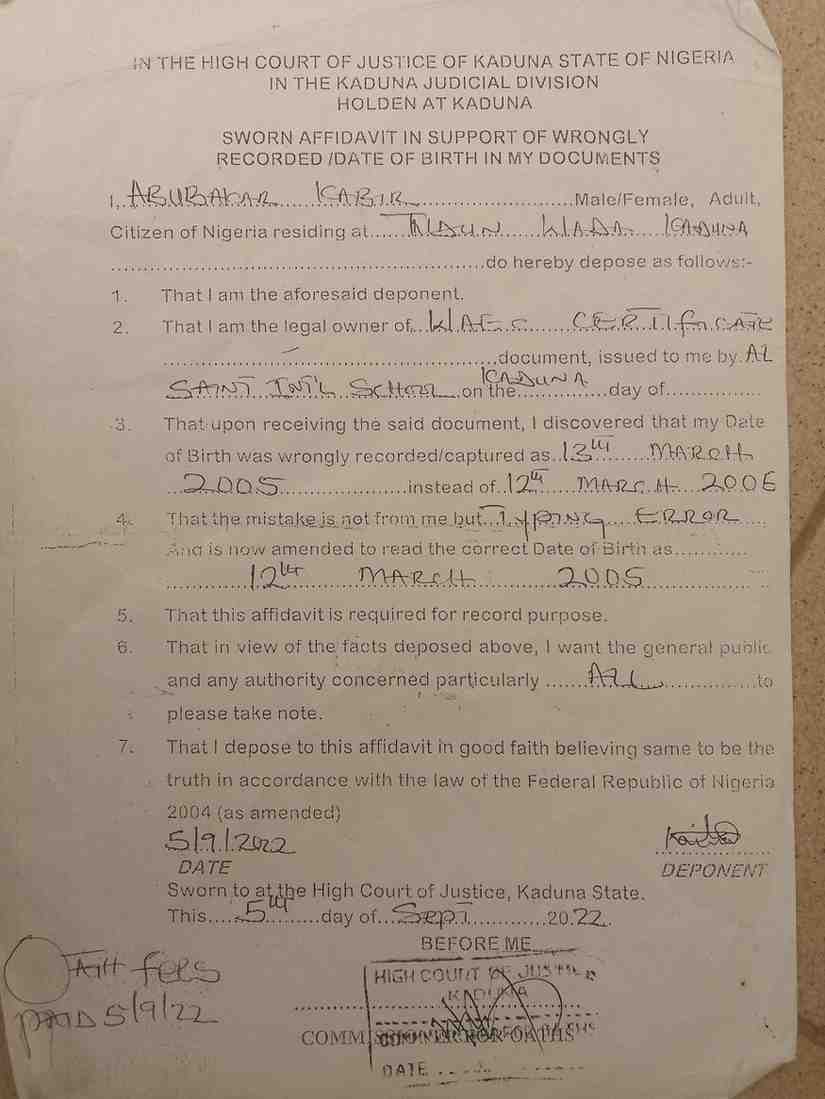 IN THE HIGH COURT OF JUSTICE OF KADUNA STATE OF NIGERIA
IN THE KADUNA JUDICIAL DIVISION
HOLDEN AT KADUNA
SWORN AFFIDAVIT IN SUPPORT OF WRONGLY
RECORDED /DATE OF BIRTH IN MY DOCUMENTS
I,..ABUBAKAR......KABIR............................Male/Female, Adult,
Citizen of Nigeria residing at......TUDUN......WADA......KADUNA
......................................................do hereby depose as follows:-
1. That I am the aforesaid deponent.
2. That I am the legal owner of...WAEC........CERTIFICATE
......................................................document, issued to me by AL
SAINT INT'L SCHOOL KADUNA on the...............day of................
3. That upon receiving the said document, I discovered that my Date
of Birth was wrongly recorded/captured as..13th......MARCH
...2005.......................instead of..12th......MARCH....2006
4. That the mistake is not from me but...Typing.....ERROR....
And is now amended to read the correct Date of Birth as............
............12th........MARCH..........2005................
5. That this affidavit is required for record purpose.
6. That in view of the facts deposed above, I want the general public
and any authority concerned particularly .......ALL................to
please take note.
7. That I depose to this affidavit in good faith believing same to be the
truth in accordance with the law of the Federal Republic of Nigeria
2004 (as amended)
5/9/2022
DATE
DEPONENT
Sworn to at the High Court of Justice, Kaduna State.
This....5th.......day of...Sept.............20.22.
BEFORE ME
HIGH COURT OF JUSTICE
KADUNA
COMMISSIONER FOR OATHS
DATE
fees
paid 5/9/22